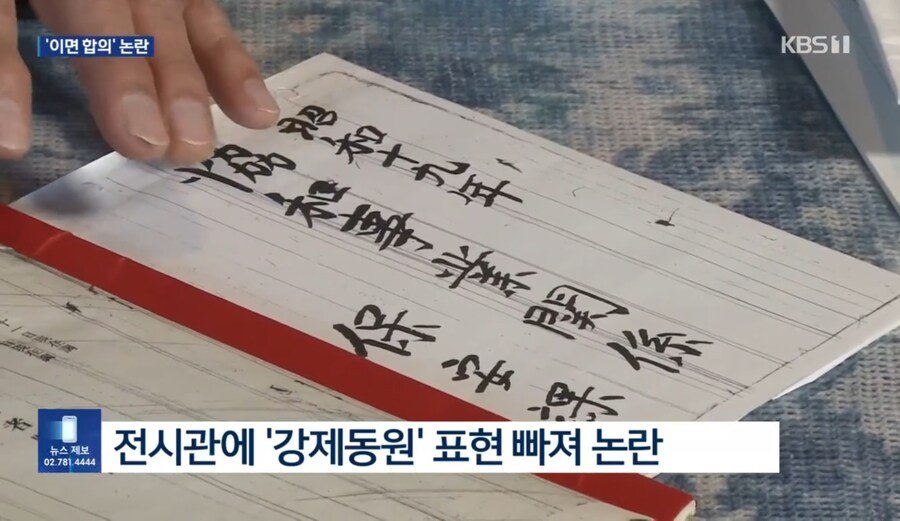 '이면 합의' 논란
KBS 1
昭和十九年
協和事業関係
保安課
뉴스 제보
02.781.4444
전시관에 '강제동원' 표현 빠져 논란